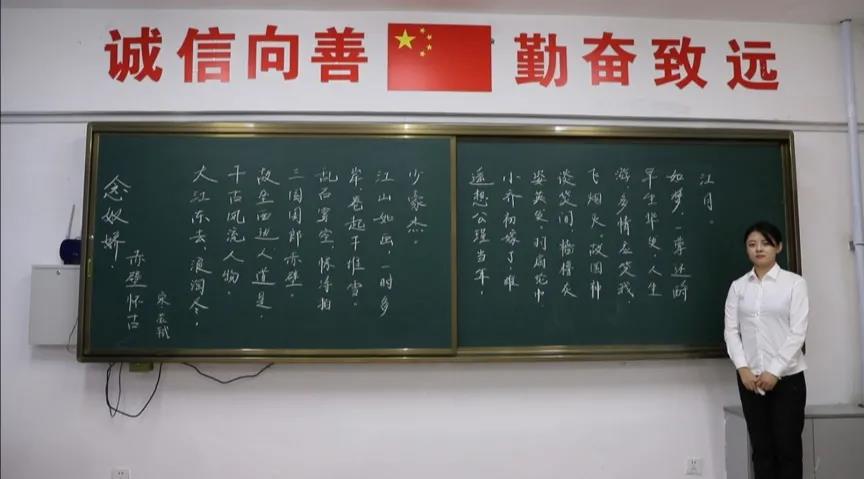 诚信向善 勤奋致远
念奴娇.
赤壁怀古
宋 苏轼
大江东去,浪淘尽,
千古风流人物。
故垒西边人道是,
三国周郎赤壁。
乱石穿空,惊涛拍
岸卷起千堆雪。
江山如画,一时多
少豪杰。
遥想公瑾当年,
小乔初嫁了,雄
姿英发,羽扇纶巾,
谈笑间,樯橹灰
飞烟灭,故国神
游,多情应笑我,
早生华发,人生
如梦,一尊还酹
江月。